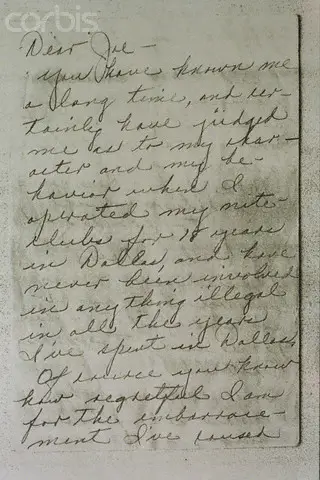 corbis
Dear Joe -
you have known me
a long time, and cer-
tainly have judged
me as to my char-
acter and my be-
havior when I
operated my nite-
clubs for 18 years
in Dallas, and have
never been involved
in anything illegal
in all the years
I've spent in Dallas,
Of course you know
how regretful I am
for the embarrass-
ment I've caused